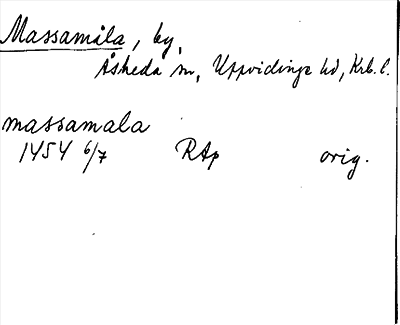 Massamåla, by,
Åsheda sn, Uppvidinge hd, Krb. l.
massamala
1454 6/7 RAp orig.